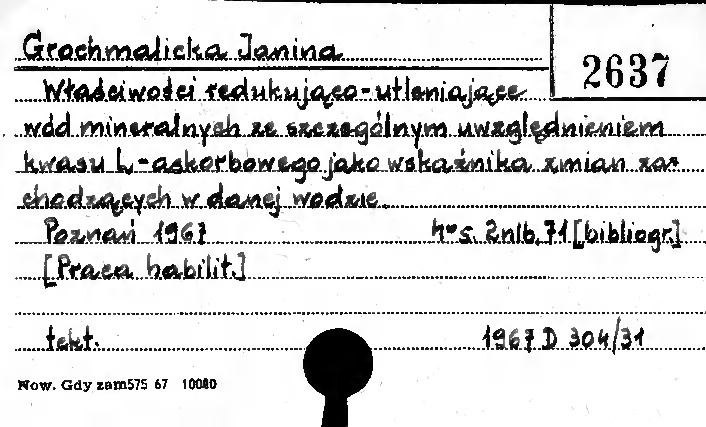 Grochmalicka Janina
2637
Właściwości redukująco-utleniające
wód mineralnych ze szczególnym uwzględnieniem
kwasu L-askorbowego jako wskaźnika zmian za-
chodzących w danej wodzie.
Poznań 1967 k-s. 2nlb. 71 [bibliogr.]
[Praca habilit.]
tekt. 1967 D 304/31
Now. Gdy zam575 67 10080